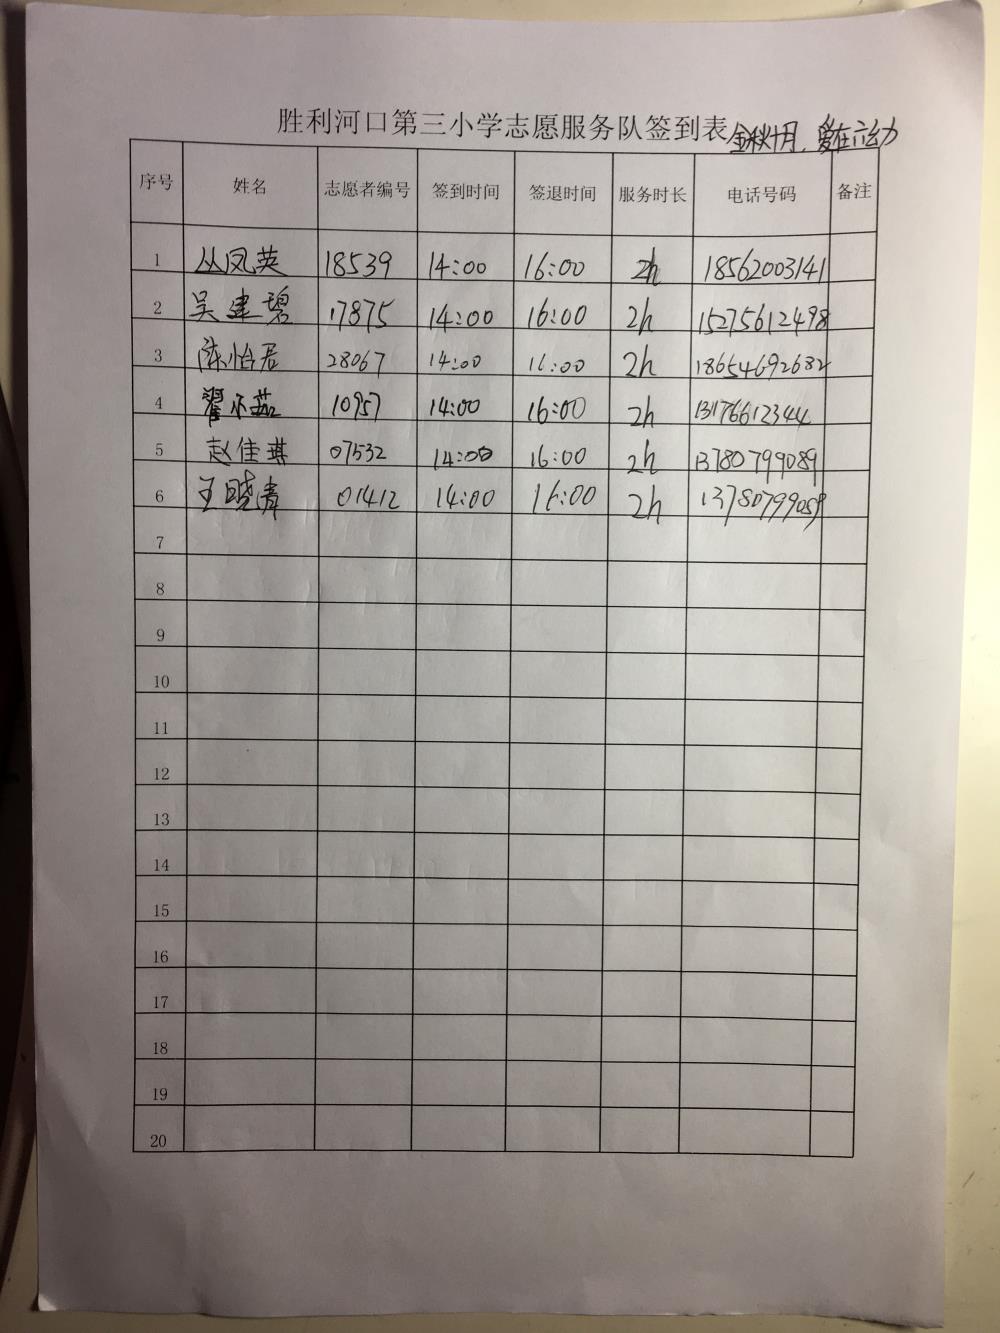 胜利河口第三小学志愿服务队签到表 金秋十月，爱在六幼
序号 姓名 志愿者编号 签到时间 签退时间 服务时长 电话号码 备注
1 丛凤英 18539 14:00 16:00 2h 18562003141
2 吴建碧 17875 14:00 16:00 2h 15275612498
3 陈怡君 28067 14:00 16:00 2h 18654692632
4 翟小茹 10957 14:00 16:00 2h 13176612344
5 赵佳琪 07532 14:00 16:00 2h 13780799089
6 王晓涛 01412 14:00 16:00 2h 13780799059
7
8
9
10
11
12
13
14
15
16
17
18
19
20